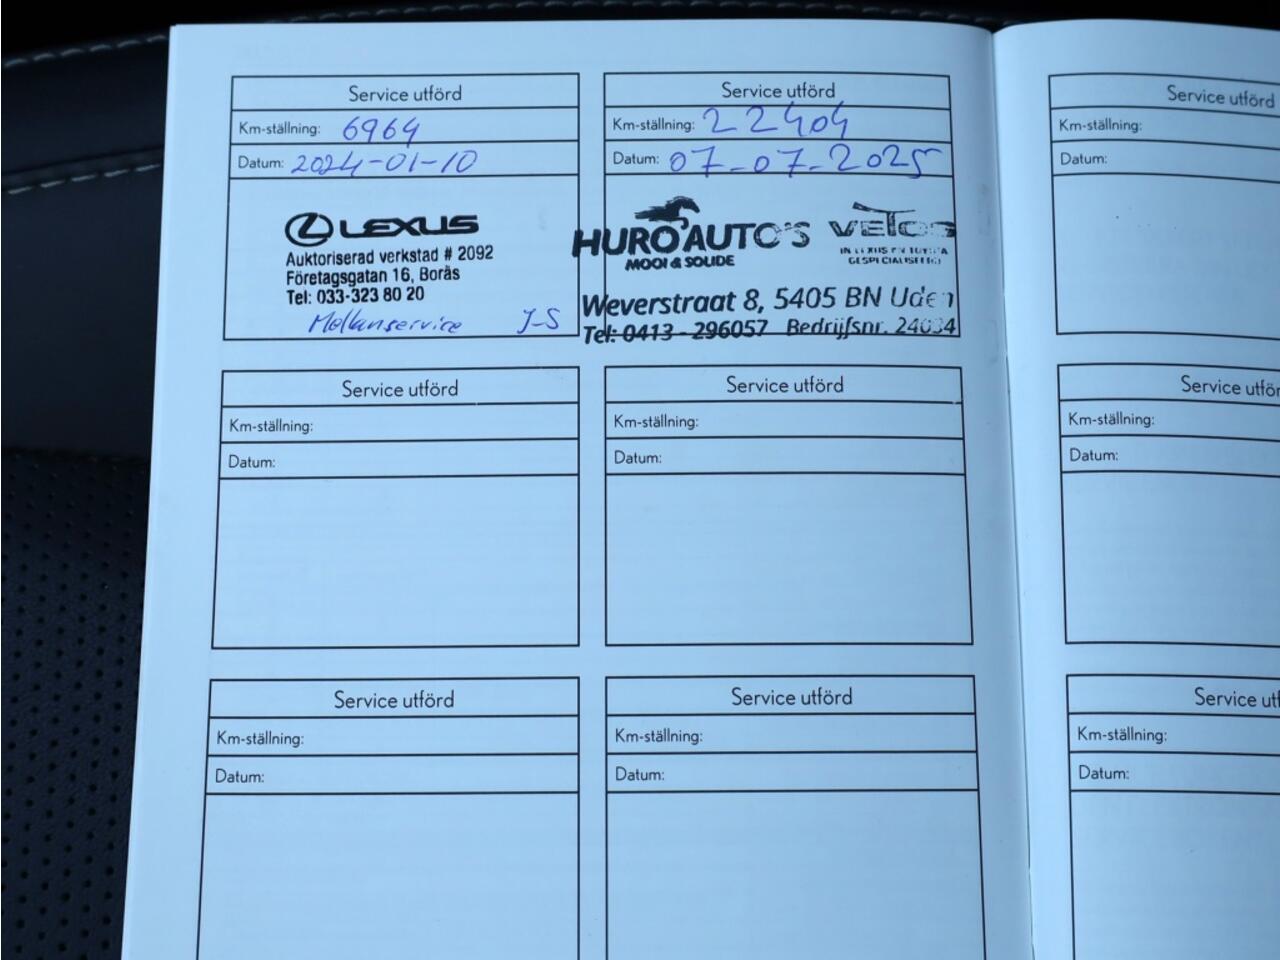 Service utförd
Km-ställning: 6964
Datum: 2024-01-10
LEXUS
Auktoriserad verkstad # 2092
Företagsgatan 16, Borås
Tel: 033-323 80 20
Mellanservice J-S
Service utförd
Km-ställning: 22404
Datum: 07-07-2025
HURO AUTO'S
MOOI & SOLIDE
VETOS
IN LEXUS EN TOYOTA
GESPECIALISEERD
Weverstraat 8, 5405 BN Uden
Tel: 0413 - 296057 Bedrijfsnr.
Service utförd
Km-ställning:
Datum:
Service utförd
Km-ställning:
Datum:
Service utförd
Km-ställning:
Datum:
Service utförd
Km-ställning:
Datum:
Service utförd
Km-ställning:
Datum:
Service utför
Km-ställning:
Datum:
Service utf
Km-ställning:
Datum: